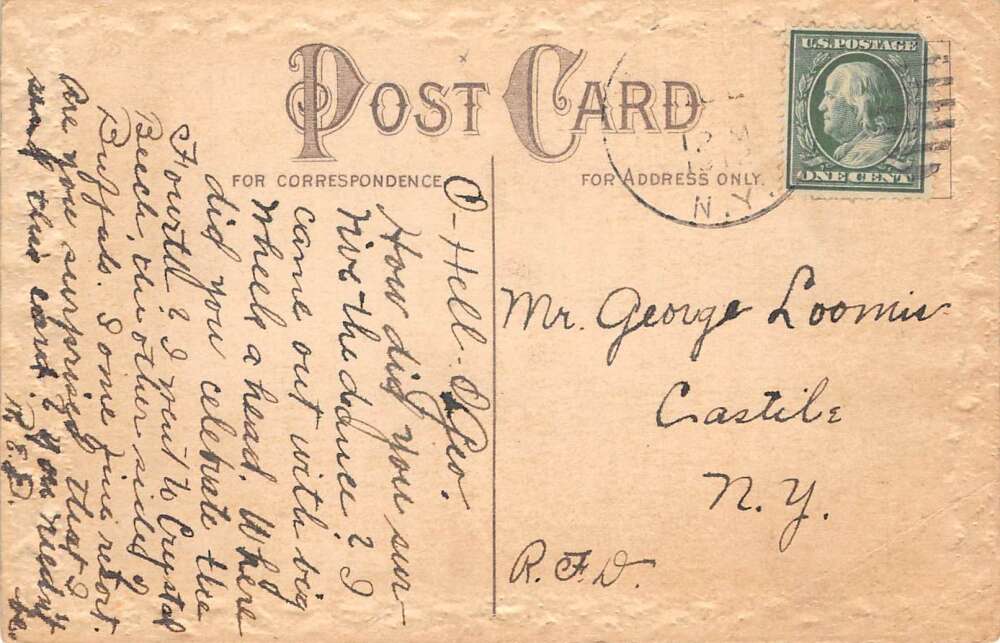 POST CARD
FOR CORRESPONDENCE
FOR ADDRESS ONLY.
U.S. POSTAGE
ONE CENT
12 M
N.Y.
O-Hell-O Geo.
How did you sur-
vive the dance? I
came out with big
wheels a head. Where
did you celebrate the
Fourth? I went to Crystal
Beech, the other side of
Buffalo. Some fine resort.
Are you surprised that I
send this card? You needn't be.
Mr. George Loomis
Castile
N.Y.
R.F.D.